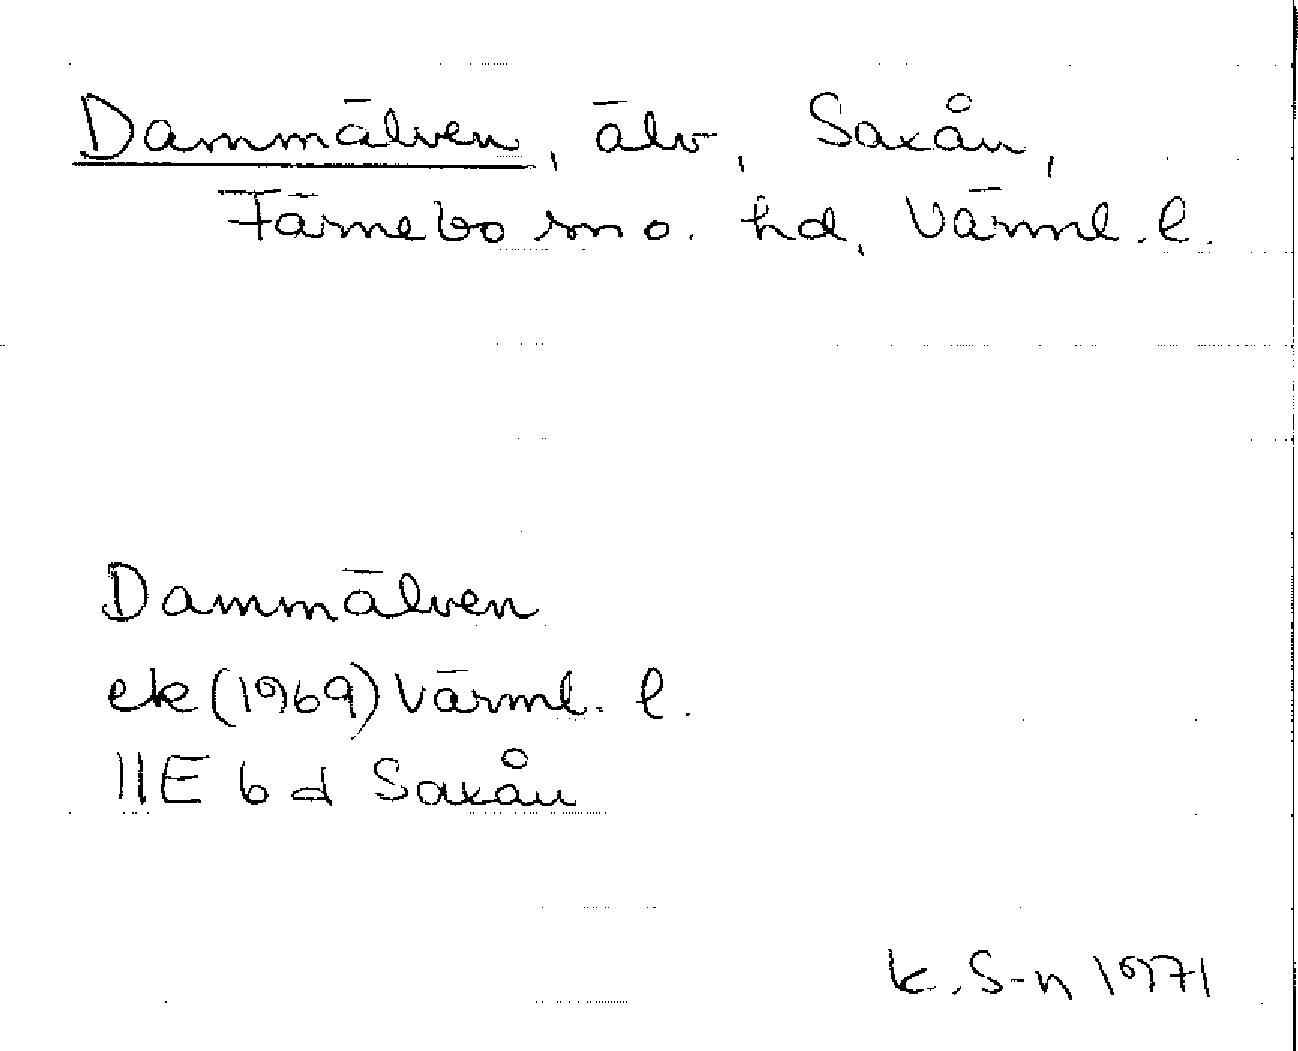 Dammälven, älv, Saxån,
Färnebo sn o. hd, Värml. l.
Dammälven
ek (1969) Värml. l.
11E 6 d Saxån
k. S-n 1971